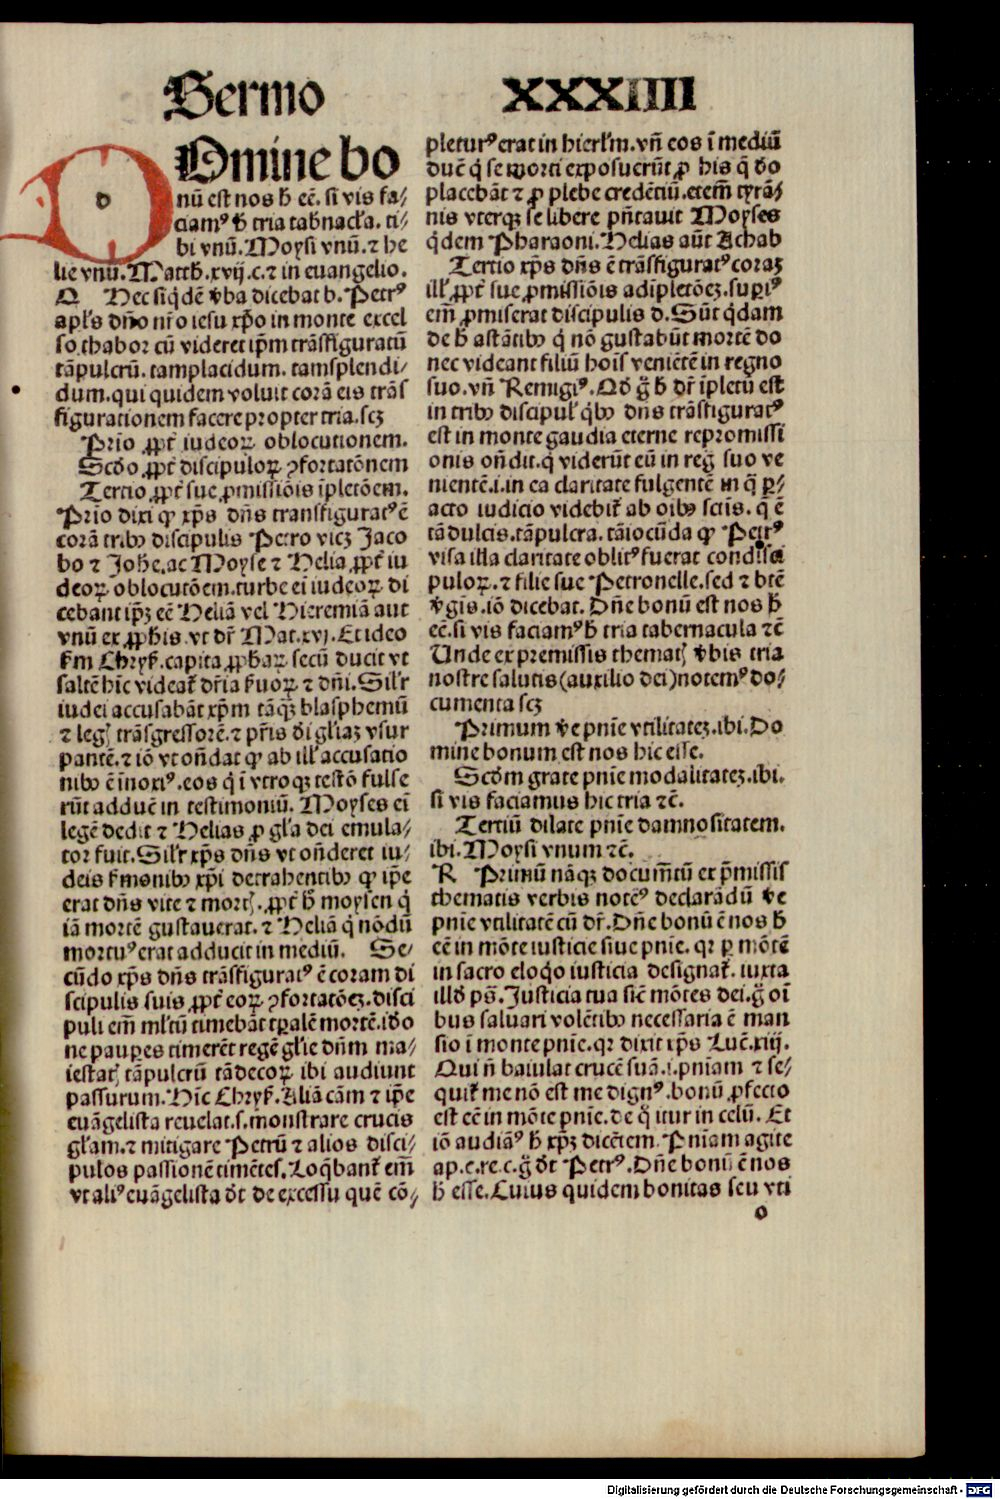 Sermo XXXIIII
Domine bo
nū est nos h̄ eē. si vis fa-
ciamꝰ h̄ tria tabnac̄la. ti-
bi vnū. Moysi vnū. ⁊ he
lie vnū. Matth. xvij. c. ⁊ in euangelio.
Q Hec siq̇dē v̄ba dicebat b. Petrꝰ
apl's dn̄o nr̄o iesu xp̄o in monte excel
so. thabor cū videret ip̄m trāsfiguratū
tāpulcrū. tamplacidum. tamsplendi-
dum. qui quidem voluit corā eis trās
figurationem facere propter tria. scꝫ
Prīo ꝓpt̄ iudeoꝝ oblocutionem.
Scd̄o ꝓpt̄ discipuloꝝ ꝯfortatōnem
Tertio ꝓpt̄ sue ꝓmissiōis īpletōem.
Prīo dixi ꝙ xp̄s dn̄s transfiguratꝰ ē
corā tribꝰ discipulis Petro vicꝫ Jaco
bo ⁊ Joh̄e. ac Moyse ⁊ Helia ꝓpt̄ iu
deoꝝ oblocutōem. turbe eī iudeoꝝ di
cebant ip̄ꝫ eē Heliā vel Hieremiā aut
vnū ex ꝓph̄is. vt dr̄ Mat. xvj. Et ideo
k̄m Chryẜ. capita ꝓph̄aꝝ secū ducit vt
saltē hīc videat̄ dr̄ia ẜuoꝝ ⁊ dn̄i. Sil'r
iudei accusabāt xp̄m tāq̄ꝫ blasphemū
⁊ leḡ trāsgressorē. ⁊ pr̄is d̄i gl'iaꝫ vsur
pantē. ⁊ iō vt on̄dat ꝙ ab ill' accusatio
nibꝰ ē īnoxiꝰ. eos q̇ ī vtroqꝫ testō fulse
rūt adducē in testimoniū. Moyses eī
legē dedit ⁊ Helias ꝓ gl'a dei emula-
tor fuit. Sil'r xp̄s dn̄s vt on̄deret iu-
deis ẜmonibꝰ xp̄i detrahentibꝰ ꝙ ip̄e
erat dn̄s vite ⁊ mort̄. ꝓpt̄ h̄ moysen q̇
iā mortē gustauerat. ⁊ Heliā q̇ nōdū
mortuꝰ erat adducit in mediū. Se-
cūdo xp̄s dn̄s trāsfiguratꝰ ē coram di
scipulis suis ꝓpt̄ eoꝝ ꝯfortatōeꝫ. disci
puli em̄ ml'tū timebāt tꝑalē mortē. id̄o
ne pauꝑes timerēt regē gl'ie dn̄m ma-
iestat̄ tāpulcrū tādecoꝝ ibi audiunt
passurum. Hīc Chryẜ. Aliā cām ⁊ ip̄e
euāgelista reuelat. s. monstrare crucis
gl'am. ⁊ mitigare Petrū ⁊ alios disci-
pulos passionē timētes. Loq̄bant̄ em̄
vt aliꝰ euāgelista dt̄ de excessu quē cō-
pleturꝰ erat in hierl'm. vn̄ eos ī mediū
ducē q̇ se morti exposuerūt ꝓ his q̄ d̄o
placebāt ⁊ ꝓ plebe credētiū. etem̄ tyrā-
nis vterqꝫ se libere pn̄tauit Moyses
q̇dem Pharaoni. Helias aūt Achab
Tertio xp̄s dn̄s ē trāsfiguratꝰ coraꝫ
ill' ꝓpt̄ sue ꝓmissiōis adipletōeꝫ. suꝑiꝰ
em̄ ꝓmiserat discipulis d. Sūt q̇dam
de h̄ astātibꝰ q̇ nō gustabūt mortē do
nec videant filiū hoīs veniētē in regno
suo. vn̄ Remigiꝰ. Qd̄ g̊ h̄ dr̄ īpletū est
in tribꝰ discipul' q̇bꝰ dn̄s trāsfiguratꝰ
est in monte gaudia eterne repromissi
onis on̄dit. q̇ viderūt eū in reg̊ suo ve
nientē. i. in ea claritate fulgentē in q̄ ꝑ-
acto iudicio videbit̄ ab oībꝰ scīs. q̄ ē
tādulcis. tāpulcra. tāiocūda ꝙ Petrꝰ
visa illa claritate oblitꝰ fuerat condisci
puloꝝ. ⁊ filie sue Petronelle. sed ⁊ bt̄e
v̄gīs. iō dicebat. Dn̄e bonū est nos h̄
eē. si vis faciamꝰ h̄ tria tabernacula ⁊c̄
Unde ex premissis themat̄ v̄bis tria
nostre salutis (auxilio dei) notemꝰ do-
cumenta scꝫ
Primum v̄e pn̄ie vtilitateꝫ. ibi. Do
mine bonum est nos hic esse.
Scd̄m grate pn̄ie modalitateꝫ. ibi.
si vis faciamus hic tria ⁊c̄.
Tertiū dilate pn̄ie damnositatem.
ibi. Moysi vnum ⁊c̄.
R Primū nāqꝫ documētū ex p̄missis
thematis verbis notēꝰ declarādū v̄e
pn̄ie vtilitatē cū dr̄. Dn̄e bonū ē nos h̄
eē in mōte iusticie siue pn̄ie. qr ꝑ mōtē
in sacro eloq̇o iusticia designat̄. iuxta
illd̄ ps̄. Justicia tua sic̄ mōtes dei. g̊ oī
bus saluari volētibꝰ necessaria ē man
sio ī monte pn̄ie. qr dixit xp̄s Luc̄. xiij.
Qui n̄ baiulat crucē suā. i. pn̄iam ⁊ se-
quit̄ me nō est me dignꝰ. bonū ꝓfecto
est eē in mōte pn̄ie. de q̊ itur in celū. Et
iō audiāꝰ h̄ xp̄ꝫ dicētem. Pn̄iam agite
ap. c. re. c. g̊ dt̄ Petrꝰ. Dn̄e bonū ē nos
h̄ esse. Cuius quidem bonitas seu vti
o
Digitalisierung gefördert durch die Deutsche Forschungsgemeinschaft - DFG